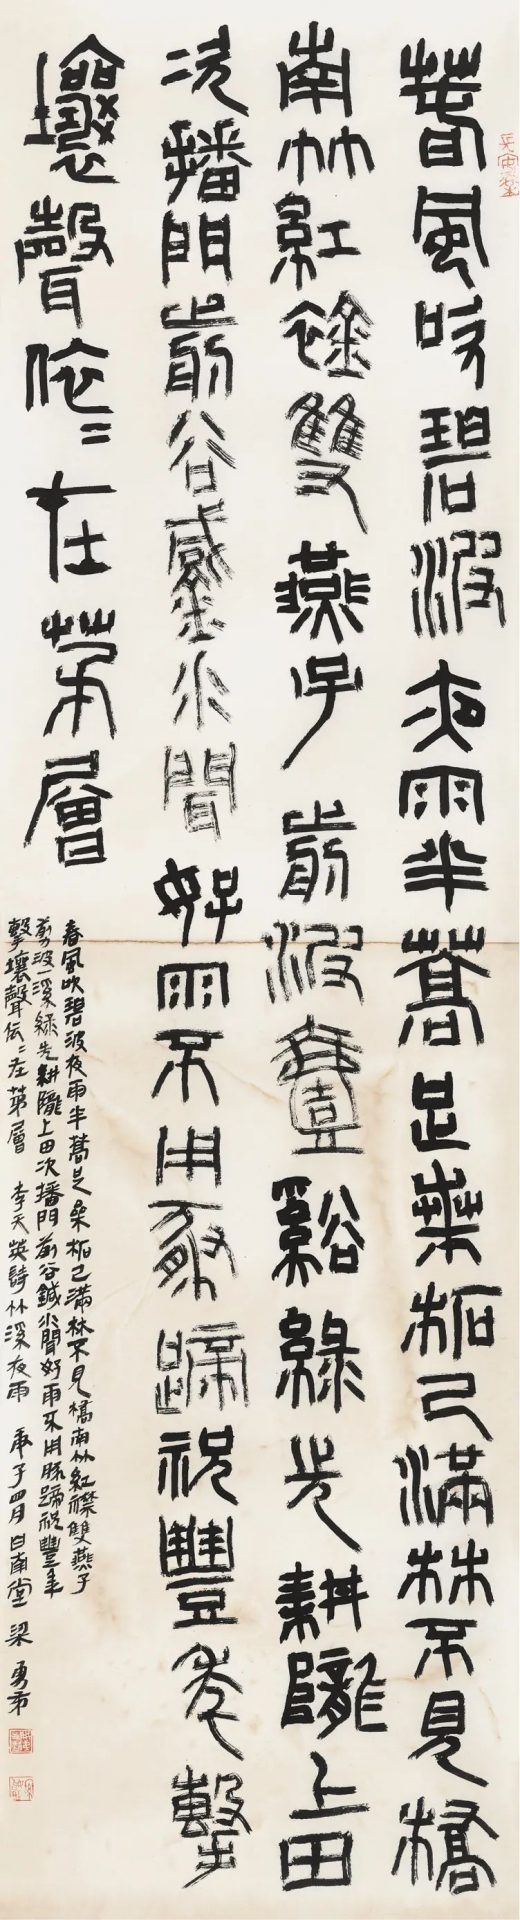 春風吹碧波夜雨半蒿足桑柘已滿林不見橋
南竹紅襟雙燕子前波壹谿綠先耕隴上田
次播門前谷鍼水聞好雨不用豚蹄祝豐年擊
壤聲依〻在茅層
春風吹碧波夜雨半蒿足桑柘已滿林不見橋南竹紅襟雙燕子
剪波一溪綠先耕隴上田次播門前谷鍼水聞好雨不用豚蹄祝豐年
擊壤聲依〻在茅層 李天英詩竹溪夜雨 庚子四月 日南堂 梁勇